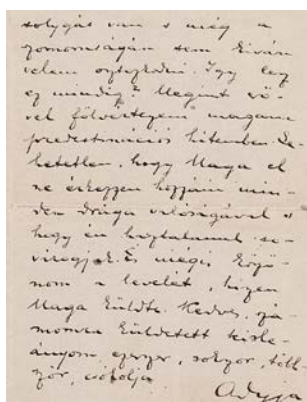 solygás van s még a
szomorúságán sem kíván
velem osztozkodni. Így lesz
ez mindig? Megint
vel fölvértezem magam
predestinációs hitemben. Le-
hetetlen, hogy Maga el
ne érkezzen hozzám min-
den drága valóságával s
hogy én
És mégis köszö-
nöm a levelét, hiszen
Maga küldte. Kedves,
küldetett kis le-
ányom, ezerszer, sokszor, több-
ször, csókolja
Adyja